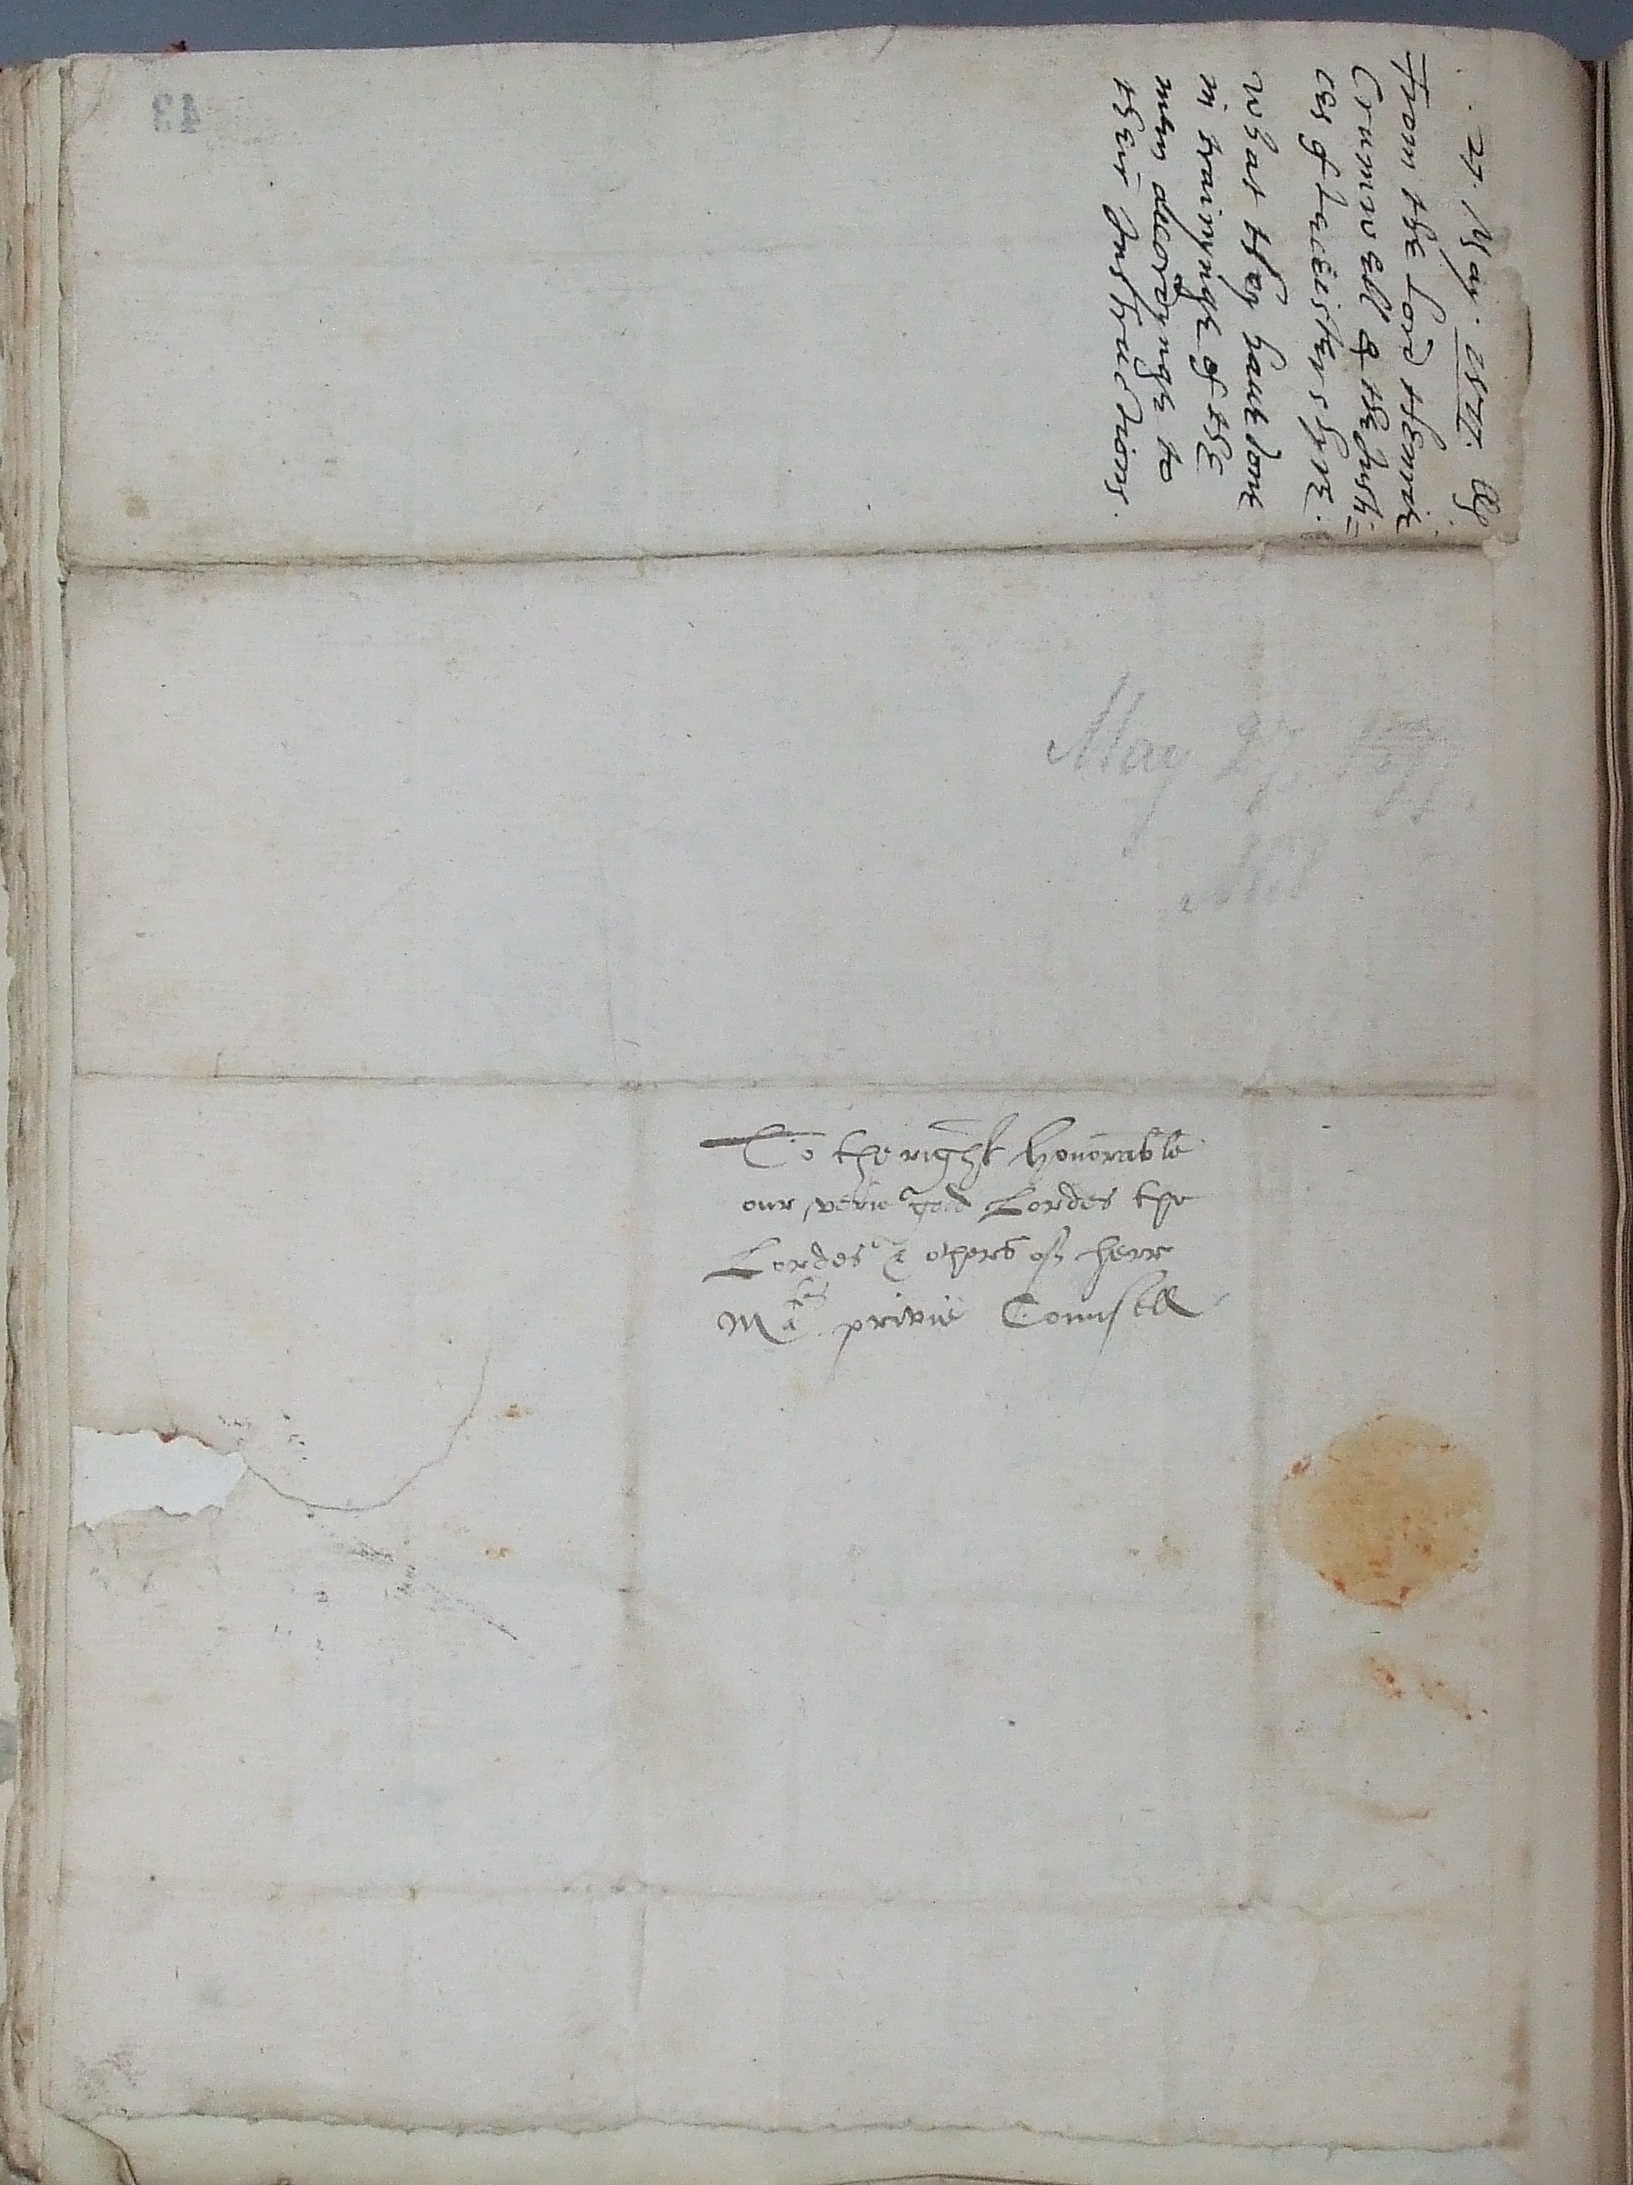 27. May. 1577.
From the Lord Henrie
Crumwell & the Justi=
ces of Leicestershyre.
What they haue done
in trainynge of the
men accordynge to
their Instructions.
May 27. 1577
To the right honorable
our verie good Lordes the
Lordes & others of herr
Ma.tes privie Counsell
43